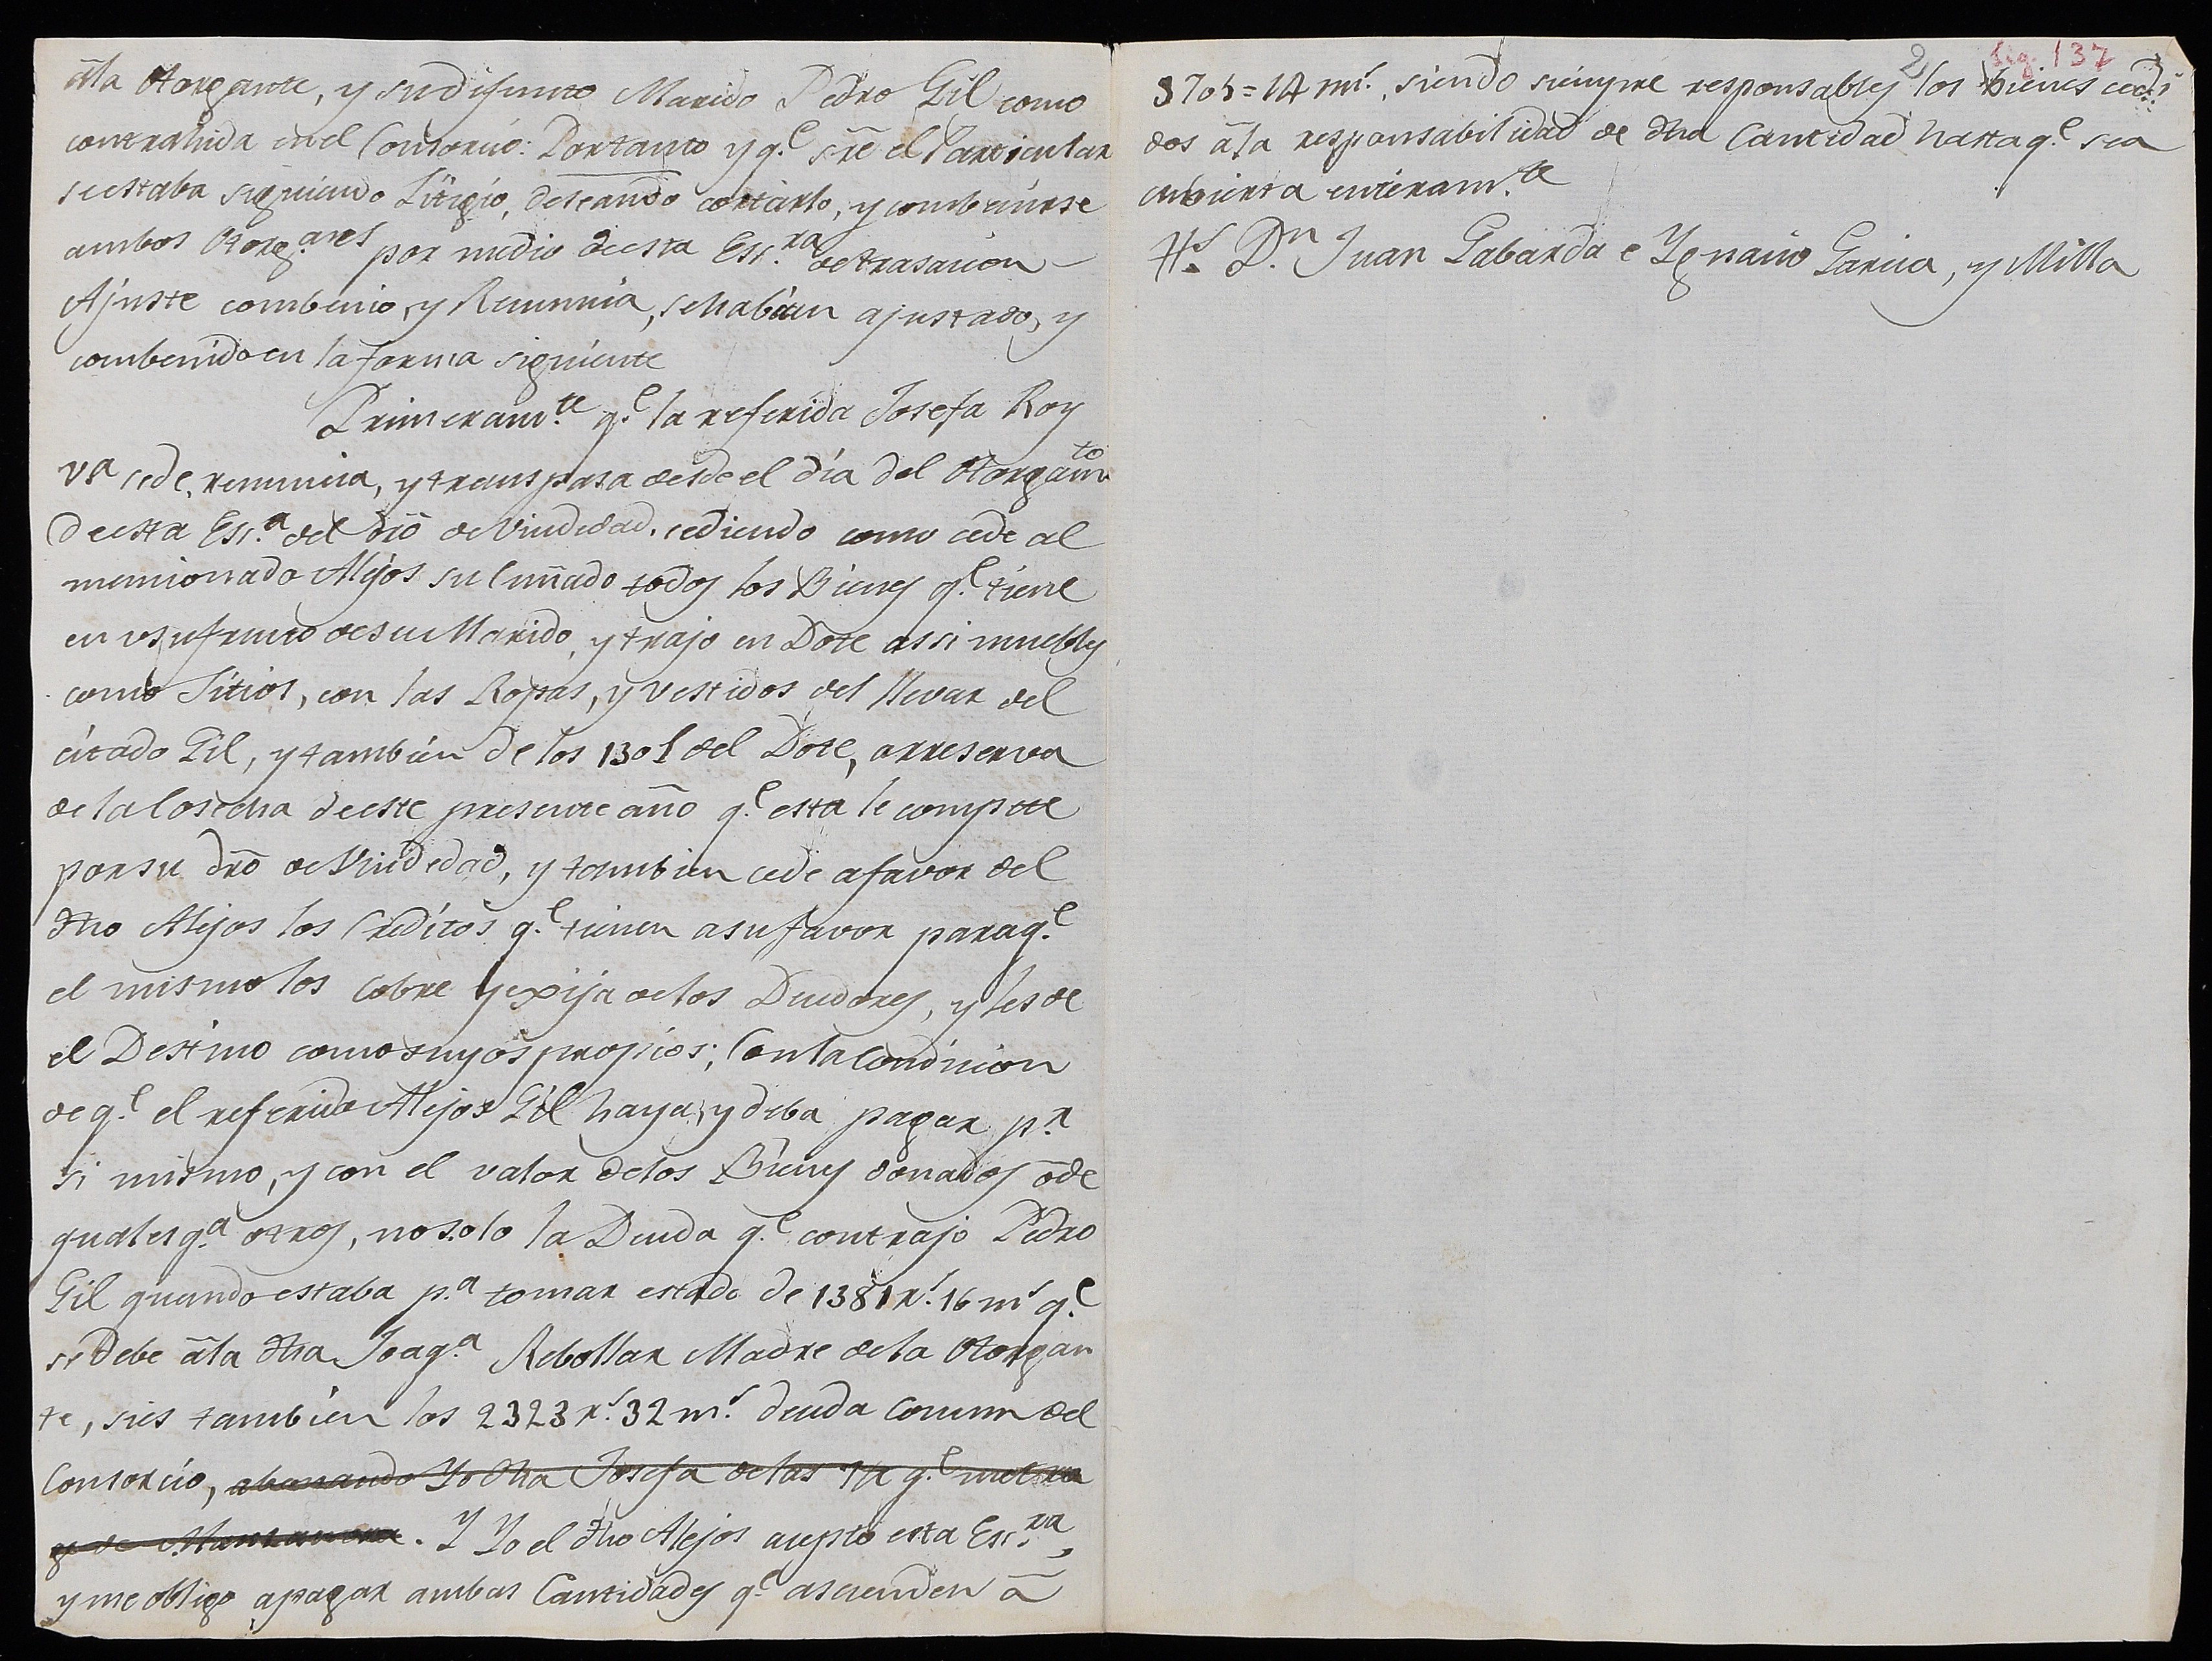 âla Otorgante, y su difunto Marido Pedro Gil como
contrahida en el Consorcio: Portanto y q.e sr̃e el Particular
se estaba siguiendo Litigio, deseando cortarlo, y combenirse
ambos Otorg.antes por medio de esta Esc.ra de trasacion
Ajuste combenio, y Renuncia, se habian ajustado, y
combenido en la forma siguiente
Primeram.te q.e la referida Josefa Roy
v.a cede, renuncia, y transpasa desde el día del Otorgam.to
de esta Esc.a del dr̃o de Viudedad, cediendo como cede al
mencionado Alejos su Cuñado todos los Bienes q.e tiene
en usufructo de su Marido, y trajo en Dote assi muebles
como Sitios, con las Ropas, y vestidos del llevar del
citado Gil, y tambien de los 130 l del Dote, a rreserva
de la Cosecha de este presente año q.e esta le compete
por su dr̃o de Viudedad, y tambien cede a favor del
dho Alejos los Creditos q.e tienen a su favor para q.e
el mismo los cobre y exija de los Deudores, y les de
el Destino como suyos propios; Con la Condicion
de q.e el referido Alejos Gil haya, y deba pagar p.r
si mismo, y con el valor de los Bienes donados ô de
qualesq.a otros, no solo la Deuda q.e contrajo Pedro
Gil quando estaba p.a tomar estado de 1381 r.s 16 m.s q.e
se Debe âla dha Joaq.a Rebollar Madre de la Otorgan
te, sies tambien los 2323 r.s 32 m.s deuda comun del
Consorcio, abonando Yo dha Josefa de las q.e
y de Manzanera. Y Yo el dho Alejos acepto esta Esc.ra,
y me obligo a pagar ambas Cantidades q.e ascienden â
2 lig. 137
3705 = 14 m.s, siendo siempre responsables los bienes cedi
dos âla responsabilidad de dha Cantidad hasta q.e sea
cubierta enteram.te
T.s D.n Juan Gabarda e Ygnacio Garcia, y Milla